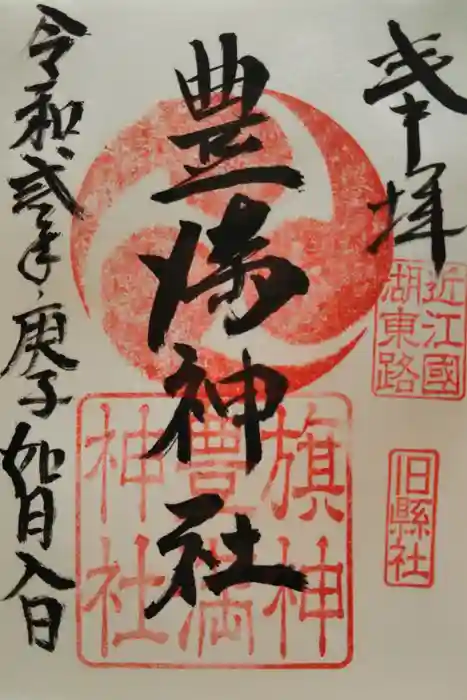 拝
近江國
湖東路
旧縣社
豊満神社
旗神
豊満
神社
令和弐年庚子如月八日